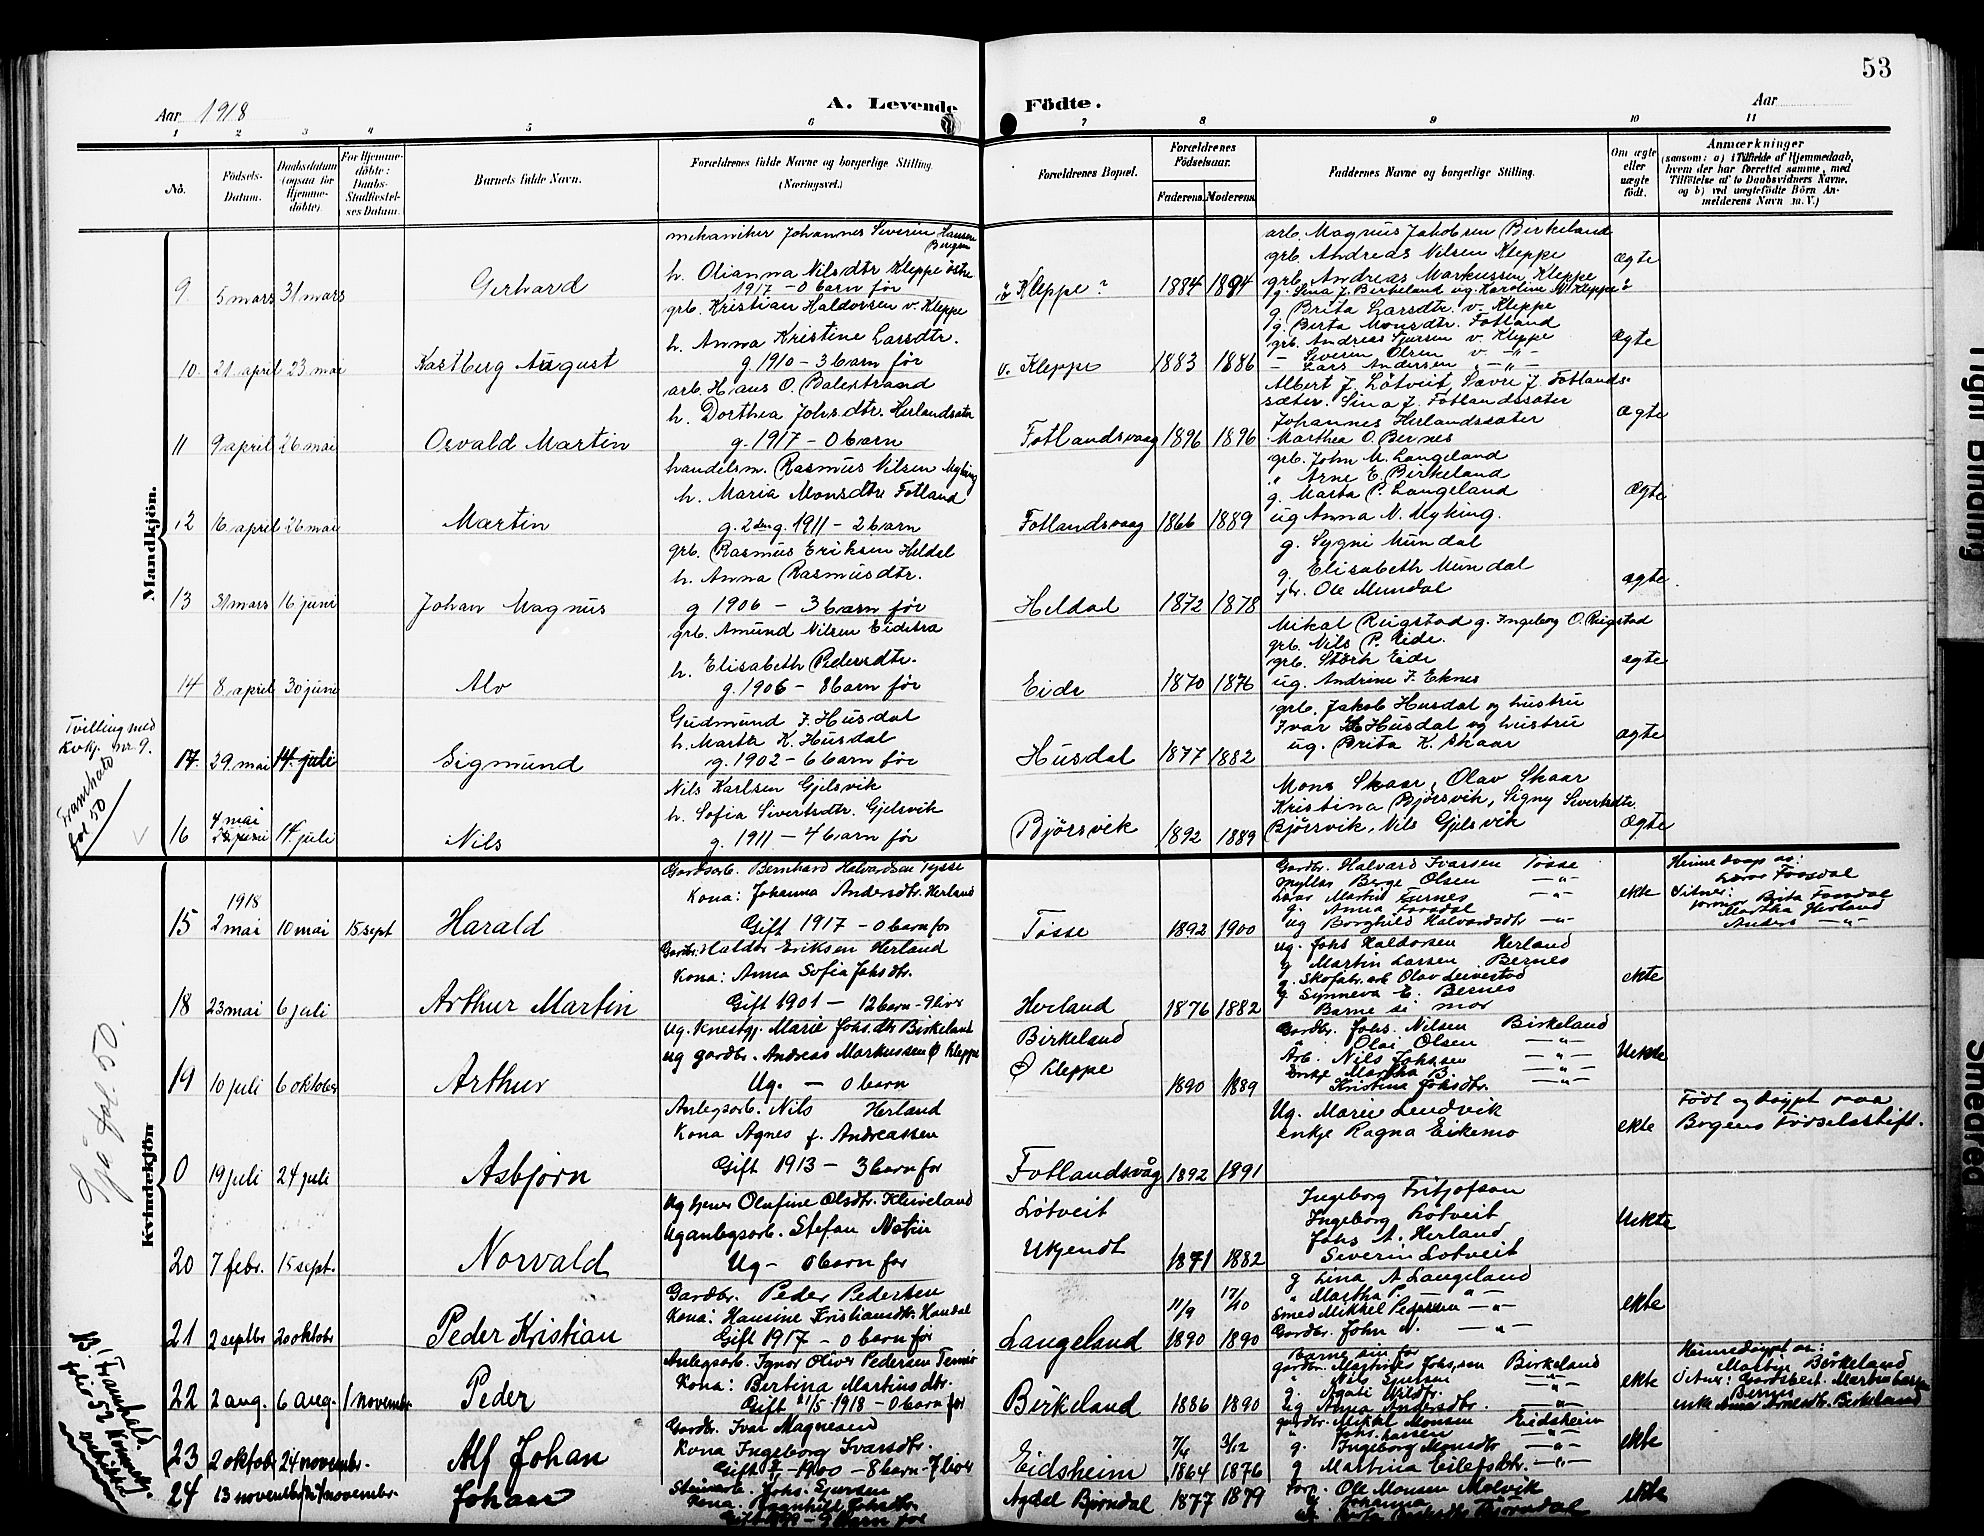 53
Aar 1918
A. Levende
Födte.
Aar
1 2 3 4 5 6 7 8 9 10 11
No.
Födsels-
Datum.
Daabsdatum
(ogsaa for
Hjemme-
döbte).
For Hjemme-
döbte:
Daabs-
Stadfæstel-
ses Datum.
Barnets fulde Navn.
Forældrenes fulde Navne og borgerlige Stilling.
(Næringsvei.)
Forældrenes Bopæl.
Forældrenes
Födselsaar.
Faderens.
Moderens.
Faddernes Navne og borgerlige Stilling.
Om ægte
eller
uægte
födt.
Anmærkninger
(saasom: a) i Tilfælde af Hjemmedaab,
hvem der har forrettet samme, med
Tilföielse af to Daabsvidners Navne,
og b) ved uægtefödte Börn An-
melderens Navn m. V.)
Mandkjön.
mekaniker Johannes Severin Hansen
Bergen
h. Olianna Nilsdtr Kleppe östre
1917 - 0 barn før
9 5 mars 31 mars Gerhard
ö Kleppe ? 1884 1894
arb. Magnus Jakobsen Birkeland
grb. Andreas Nilsen Kleppe
grb. Andreas Markussen Kleppe
g. Sina J. Birkeland ug. Karoline M. Kleppe
ægte
grb. Kristian Haldorsen v. Kleppe
h. Anna Kristine Larsdtr.
g 1910 - 3 barn før
10 21 april 23 mai Kastberg August
v. Kleppe 1883 1886
g. Brita Larsdtr. v. Kleppe
g. Berta Monsdtr. Fotland
grb. Andreas Sjursen v. Kleppe
- Severin Olsen v. -"-
- Lars Andersen -"-
ægte
arb. Hans O. Balestrand
h. Dorthea Johsdtr. Herlandsæter
g. 1917 - 0 barn
11 9 april 26 mai Osvald Martin
Fotlandsvaag 1896 1896
Albert J. Løtveit, Sævre J. Fotlands-
sæter. Sina J. Fotlandssæter
Johannes Herlandssæter
Marthea O. Bernes
ægte
handelsm. Rasmus Nilsen Myking
h. Maria Monsdtr Fotland
g. 2den g. 1911 - 2 barn
12 16 april 26 mai Martin
Fotlandsvaag 1866 1889
grb. John M. Langeland
" Arne E. Birkeland
g. Marta P. Langeland
ug Anna N. Myking.
ægte
grb. Rasmus Eriksen Heldal
h. Anna Rasmusdtr.
g 1906 - 3 barn før
13 31 mars 16 juni Johan Magnus
Heldal 1872 1878
g. Sygni Mundal
g. Elisabeth Mundal
gbr. Ole Mundal
ægte
grb. Amund Nilsen Eidetra
h. Elisabeth Pedersdtr.
g. 1906 - 8 barn før
14 8 april 30 juni Alv
Eide 1870 1876
Mikal Reigstad g. Ingeborg O. Reigstad
grb. Nils P. Eide.
grb. Størk Eide
ug. Andrine J. Eknes
ægte
Tvilling med
Kvkj. nr 9.
Gudmund J. Husdal
h. Marta K. Husdal
g. 1902 - 6 barn før
17 29. mai 14. juli Sigmund
Husdal 1877 1882
grb. Jakob Husdal og hustru
Ivar Husdal og hustru
ug. Brita K. Skaar
ægte
Framhald
fol 50
Nils Karlsen Gjelsvik
h. Sofia Sivertsdtr. Gjelsvik
g. 1911 - 4 barn før
16 4 mai 14 juli Nils
Bjørsvik 1892 1889
Mons Skaar, Olav Skaar
Kristina Bjørsvik, Signy Sivertsdtr.
Bjørsvik, Nils Gjelsvik
ægte
Kvindekjön
Sjå fol. 50.
Gardsarb. Bernhard Halvardsen Tysse
Kona: Johanna Andersdtr. Herland
Gift 1917 - 0 barn før
1918
15 2 mai 10 mai 15 sept Harald
Tösse 1892 1900
Gardbr. Halvard Ivarsen Tösse
Myllar Berge Olsen -"-
Lærar Martin Furnes -"-
g. Anna Fossdal
ug Borghild Halvardsdtr -"-
ekte
Heimedøypt av:
Lærar Fossdal
Vitner: jormor Brita Fossdal
Martha Herland
Anders -"-
Gardbr. Haldor Eriksen Herland
Kona: Anna Sofia Johsdtr.
Gift 1901 - 12 barn - 9 liver
18 23 mai 6 juli Arthur Martin
Herland 1876 1882
ug. Johs Haldorsen Herland
g Martin Larsen Bernes
g. Skofabr. arb Olav Leirestad
g Synneva E. Bernes
Barne si mor
ekte
Ug. Marie Johs.dtr Birkeland
ug gardbr. Andreas Markussen Ø Kleppe
Ug. - 0 barn
19 10 juli 6 oktober Arthur
Birkeland
Ø Kleppe 1890 1889
Gardbr. Johs. Nilsen Birkeland
" Olai Olsen -"-
Arb. Nils Johssen -"-
Enkje Martha B. -"-
Kristina Johsdtr. -"-
Uekte
Anlegsarb. Nils Herland
Kona Agnes f. Andreassen
Gift 1913 - 3 barn for
0 19 juli 24 juli Asbjørn
Fotlandsvåg 1892 1891
Ug. Marie Lendvik
enkje Ragna Eikemo
ekte
Født og døypt paa
Bergens Fødselsstift.
Ug tjener Olufine Olsdtr. Kleiveland
Ug anlegsarb. Stefan Notin
Ug - 0 barn for
20 7 febr. 15 sept. Norvald
Løtveit
Ukjendt 1871 1882
Ingeborg Fritjofson
Ingeborg Løtveit
Johs A. Herland
Severin Løtveit
Uekte
Gardbr. Peder Pedersen
Kona: Hansine Kristiansdtr. Handal
Gift 1917 - 0 barn før
21 2 septbr 20 oktobr Peder Kristian
Langeland 11/9 1890 17/10 1890
g Lina A Langeland
" Martha P. -"-
Smed Mikkel Pedersen -"-
Gardbr. John N. -"-
ekte
B! Framhald.
folio 52
Anlegsarb. Ignar Oliver Pedersen
Kona: Bertina Martinsdtr.
Gift 21/5 1918 - 0 barn før
22 2 aug. 6 aug. 1 novembr Peder
Birkeland 1886 1890
Barne sin far
gardbr. Martines Johs,sen Birkeland
" Nils Sjursen -"-
g. Agali Nilsdtr. -"-
ug Anna Andersdtr. -"-
ekte
Heimedøypt av:
Martin Birkeland
Vitner: Gardsbest. Martin
Bernes
enke Anna Arnesdtr. Birkeland
Gardbr. Ivar Magnesen
Kona Ingeborg Ivarsdtr.
Gift 1900 - 8 barn - 7 liver
23 2 oktobr 24 novembr. Alf Johan
Eidsheim 7/4 1864 3/12 1876
gardbr. Mikkel Monsen Eidsheim
" Johs. Larsen -"-
g. Ingeborg Monsdtr -"-
g Martina Eilefsdtr. -"-
ekte
Steinarb. Johs. Sjursen
Kona. Ragnhild Johsdtr.
24 13 novembr 24 novembr. Johan
Bjørndal 1877 1879
Forp. Ole Monsen Molvik
g Johanna
ekte